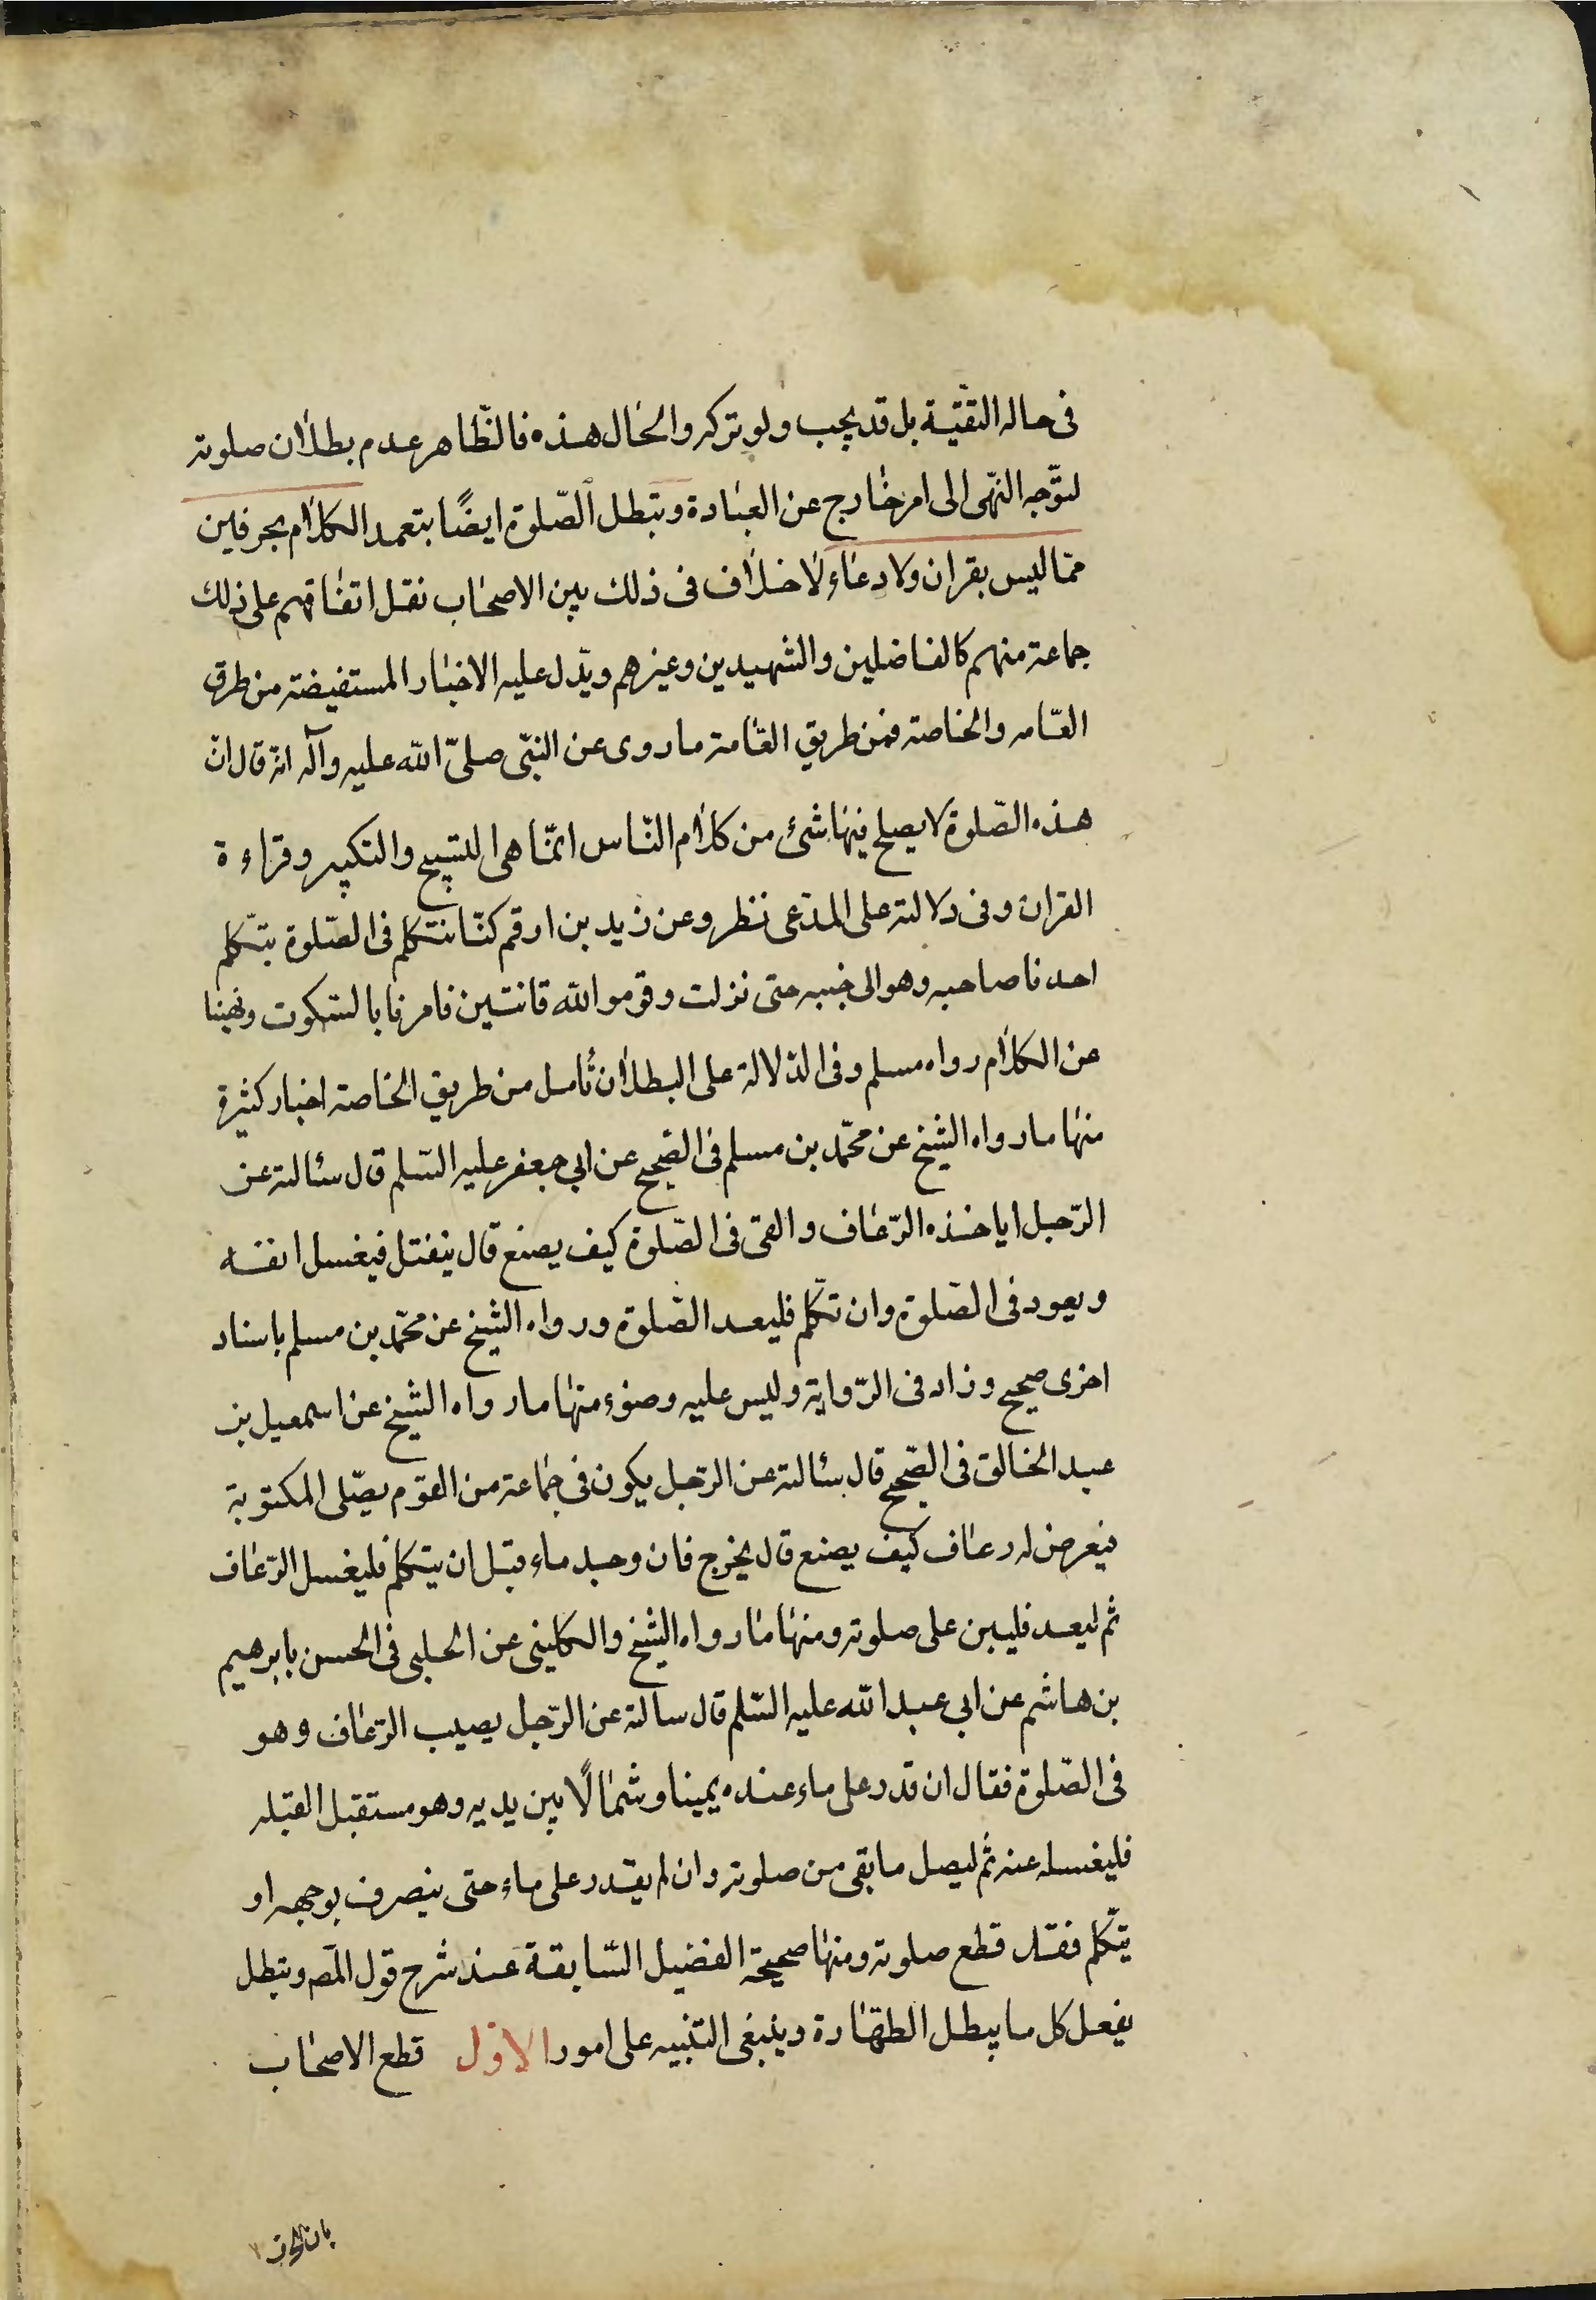 فى حاله التقيّة بل قد يجب ولو تركه والحال هذه فالظّاهر عدم بطلان صلوته
لتوّجه النّهى الى امر خارج عن العبادة وتبطل الصّلوة ايضًا بتعمد الكلام بحرفين
ممّا ليس بقران ولا دعاء لا خلاف فى ذلك بين الاصحاب نقل اتفاقهم على ذلك
جماعة منهم كالفاضلين والشهيدين وغيرهم ويدّل عليه الاخبار المستفيضة من طرق
العّامه والخاصة فمن طريق العّامة ما روى عن النبّى صلىّ الله عليه وآله انه قال ان
هذه الصّلوة لا يصلح فيها شئ من كلام النّاس انمّا هى التسبيح والتكبير وقراءة
القران وفى دلالته على المدّعى نظر وعن زيد بن ارقم كنّا نتكلم فى الصّلوة يتكلّم
احدنا صاحبه وهو الى جنبه حتى نزلت وقوموا لله قانتين فامرنا بالسّكوت ونهينا
عن الكلام رواه مسلم وفى الدّلالة على البطلان تأمل من طريق الخاصة اخبار كثيرة
منها ما رواه الشيخ عن محمّد بن مسلم فى الصّحيح عن ابي جعفر عليه السّلم قال سئالته عن
الرّجل اياخذه الرّعاف والقئ فى الصّلوة كيف يصنع قال ينفتل فيغسل انفه
ويعود فى الصّلوة وان تكلّم فليعد الصّلوة ورواه الشيخ عن محمّد بن مسلم باسناد
اخرى صحيح وزاد فى الرّواية وليس عليه وضوء منها ما رواه الشيخ عن اسمعيل بن
عبد الخالق فى الصّحيح قال سئالته عن الرّجل يكون فى جماعة من القوم يصّلى المكتوبة
فيعرض له رعاف كيف يصنع قال يخرج فان وجد ماء قبل ان يتكلم فليغسل الرّعاف
ثم ليعد فليبن على صلوته ومنها ما رواه الشيخ والكلينى عن الحلبى فى الحسن بابرهيم
بن هاشم عن ابي عبد الله عليه السّلم قال سالته عن الرّجل يصيب الرّعاف وهو
فى الصّلوة فقال ان قدر على ماء عنده يمينا وشمالًا بين يديه وهو مستقبل القبله
فليغسله عنه ثم ليصل ما بقى من صلوته وان لم يقدر على ماء حتى ينصرف بوجهه او
يتكّلم فقد قطع صلوته ومنها صحيحة الفضيل السّابقة عند شرح قول المصّ وتبطل
بفعل كل ما يبطل الطهّارة وينبغى التنبيه على امور الاول قطع الاصحاب